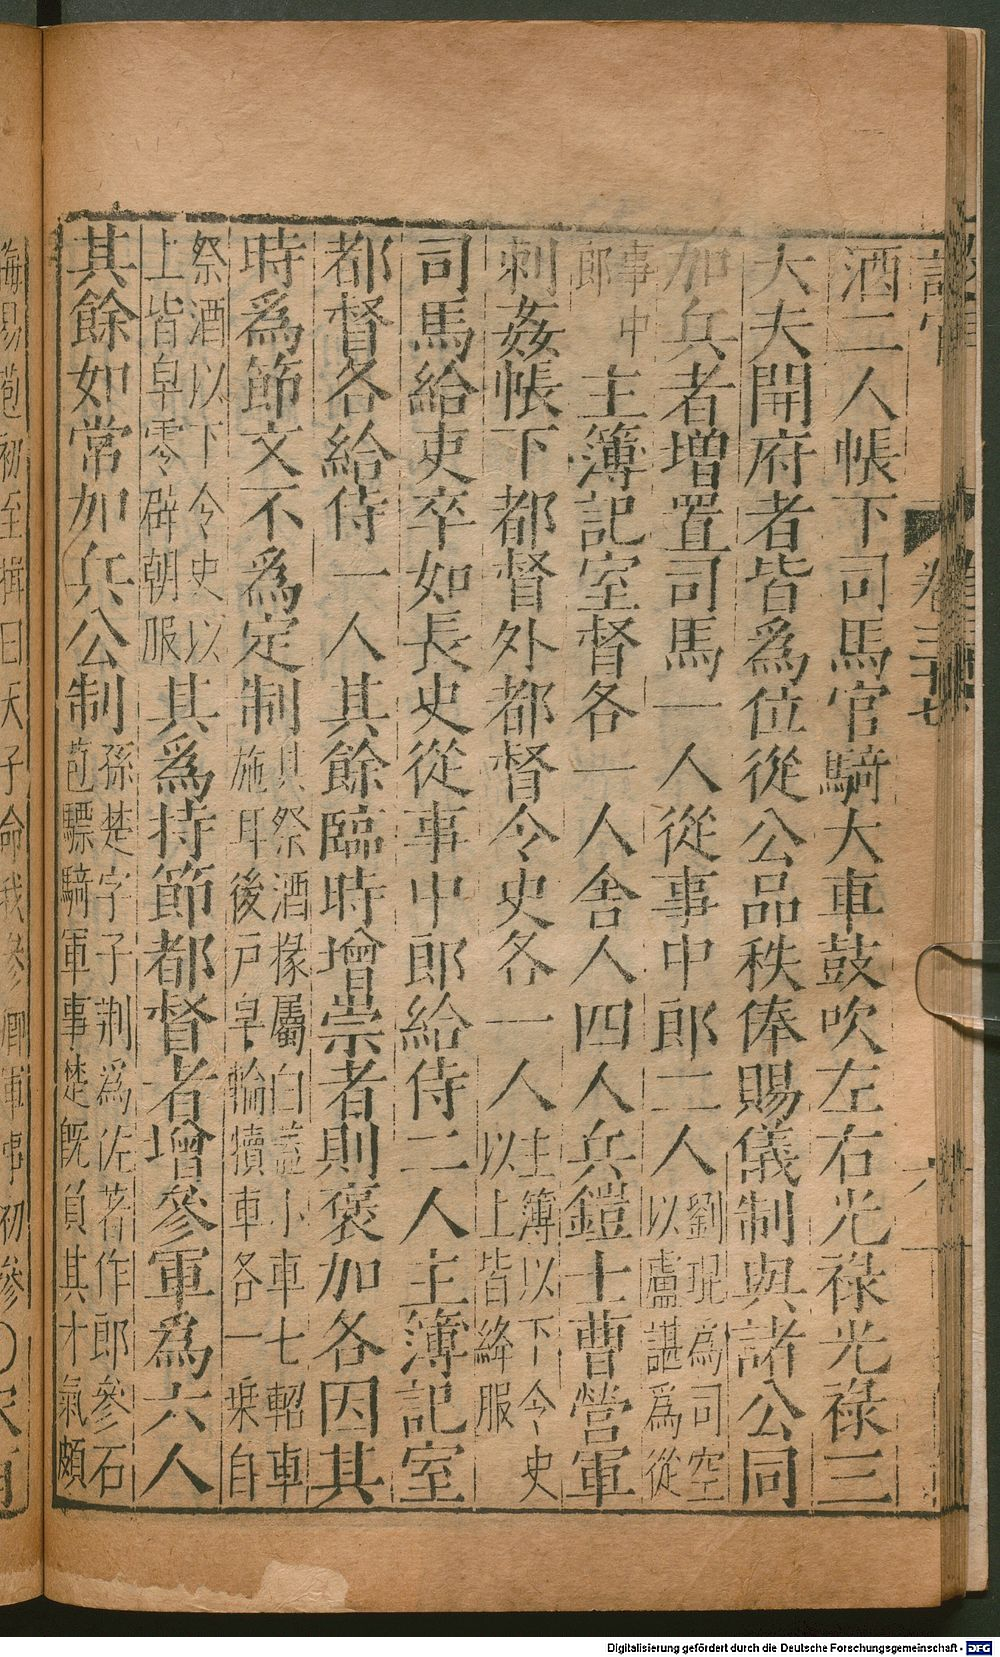 卷三十七
酒二人帳下司馬官騎大車鼓吹左右光祿光祿三
大夫開府者皆爲位從公品秩俸賜儀制與諸公同
加兵者增置司馬一人從事中郎二人劉琨爲司空以盧諶爲從
事中郎主簿記室督各一人舍人四人兵鎧士曹營軍
刺姦帳下都督外都督令史各一人主簿以下令史以上皆絳服
司馬給吏卒如長史從事中郎給侍二人主簿記室
都督各給侍一人其餘臨時增崇者則褒加各因其
時爲節文不爲定制其祭酒掾屬白蓋小車七軺車施耳後戸皁輪犢車各一乗自
祭酒以下令史以上皆皁零辟朝服其爲持節都督者增參軍爲六人
其餘如常加兵公制孫楚字子荆爲佐著作郎參石苞驃騎軍事楚旣負其才氣頗
侮易苞初至揖曰天子命我參卿軍事初參〇
Digitalisierung gefördert durch die Deutsche Forschungsgemeinschaft - DFG